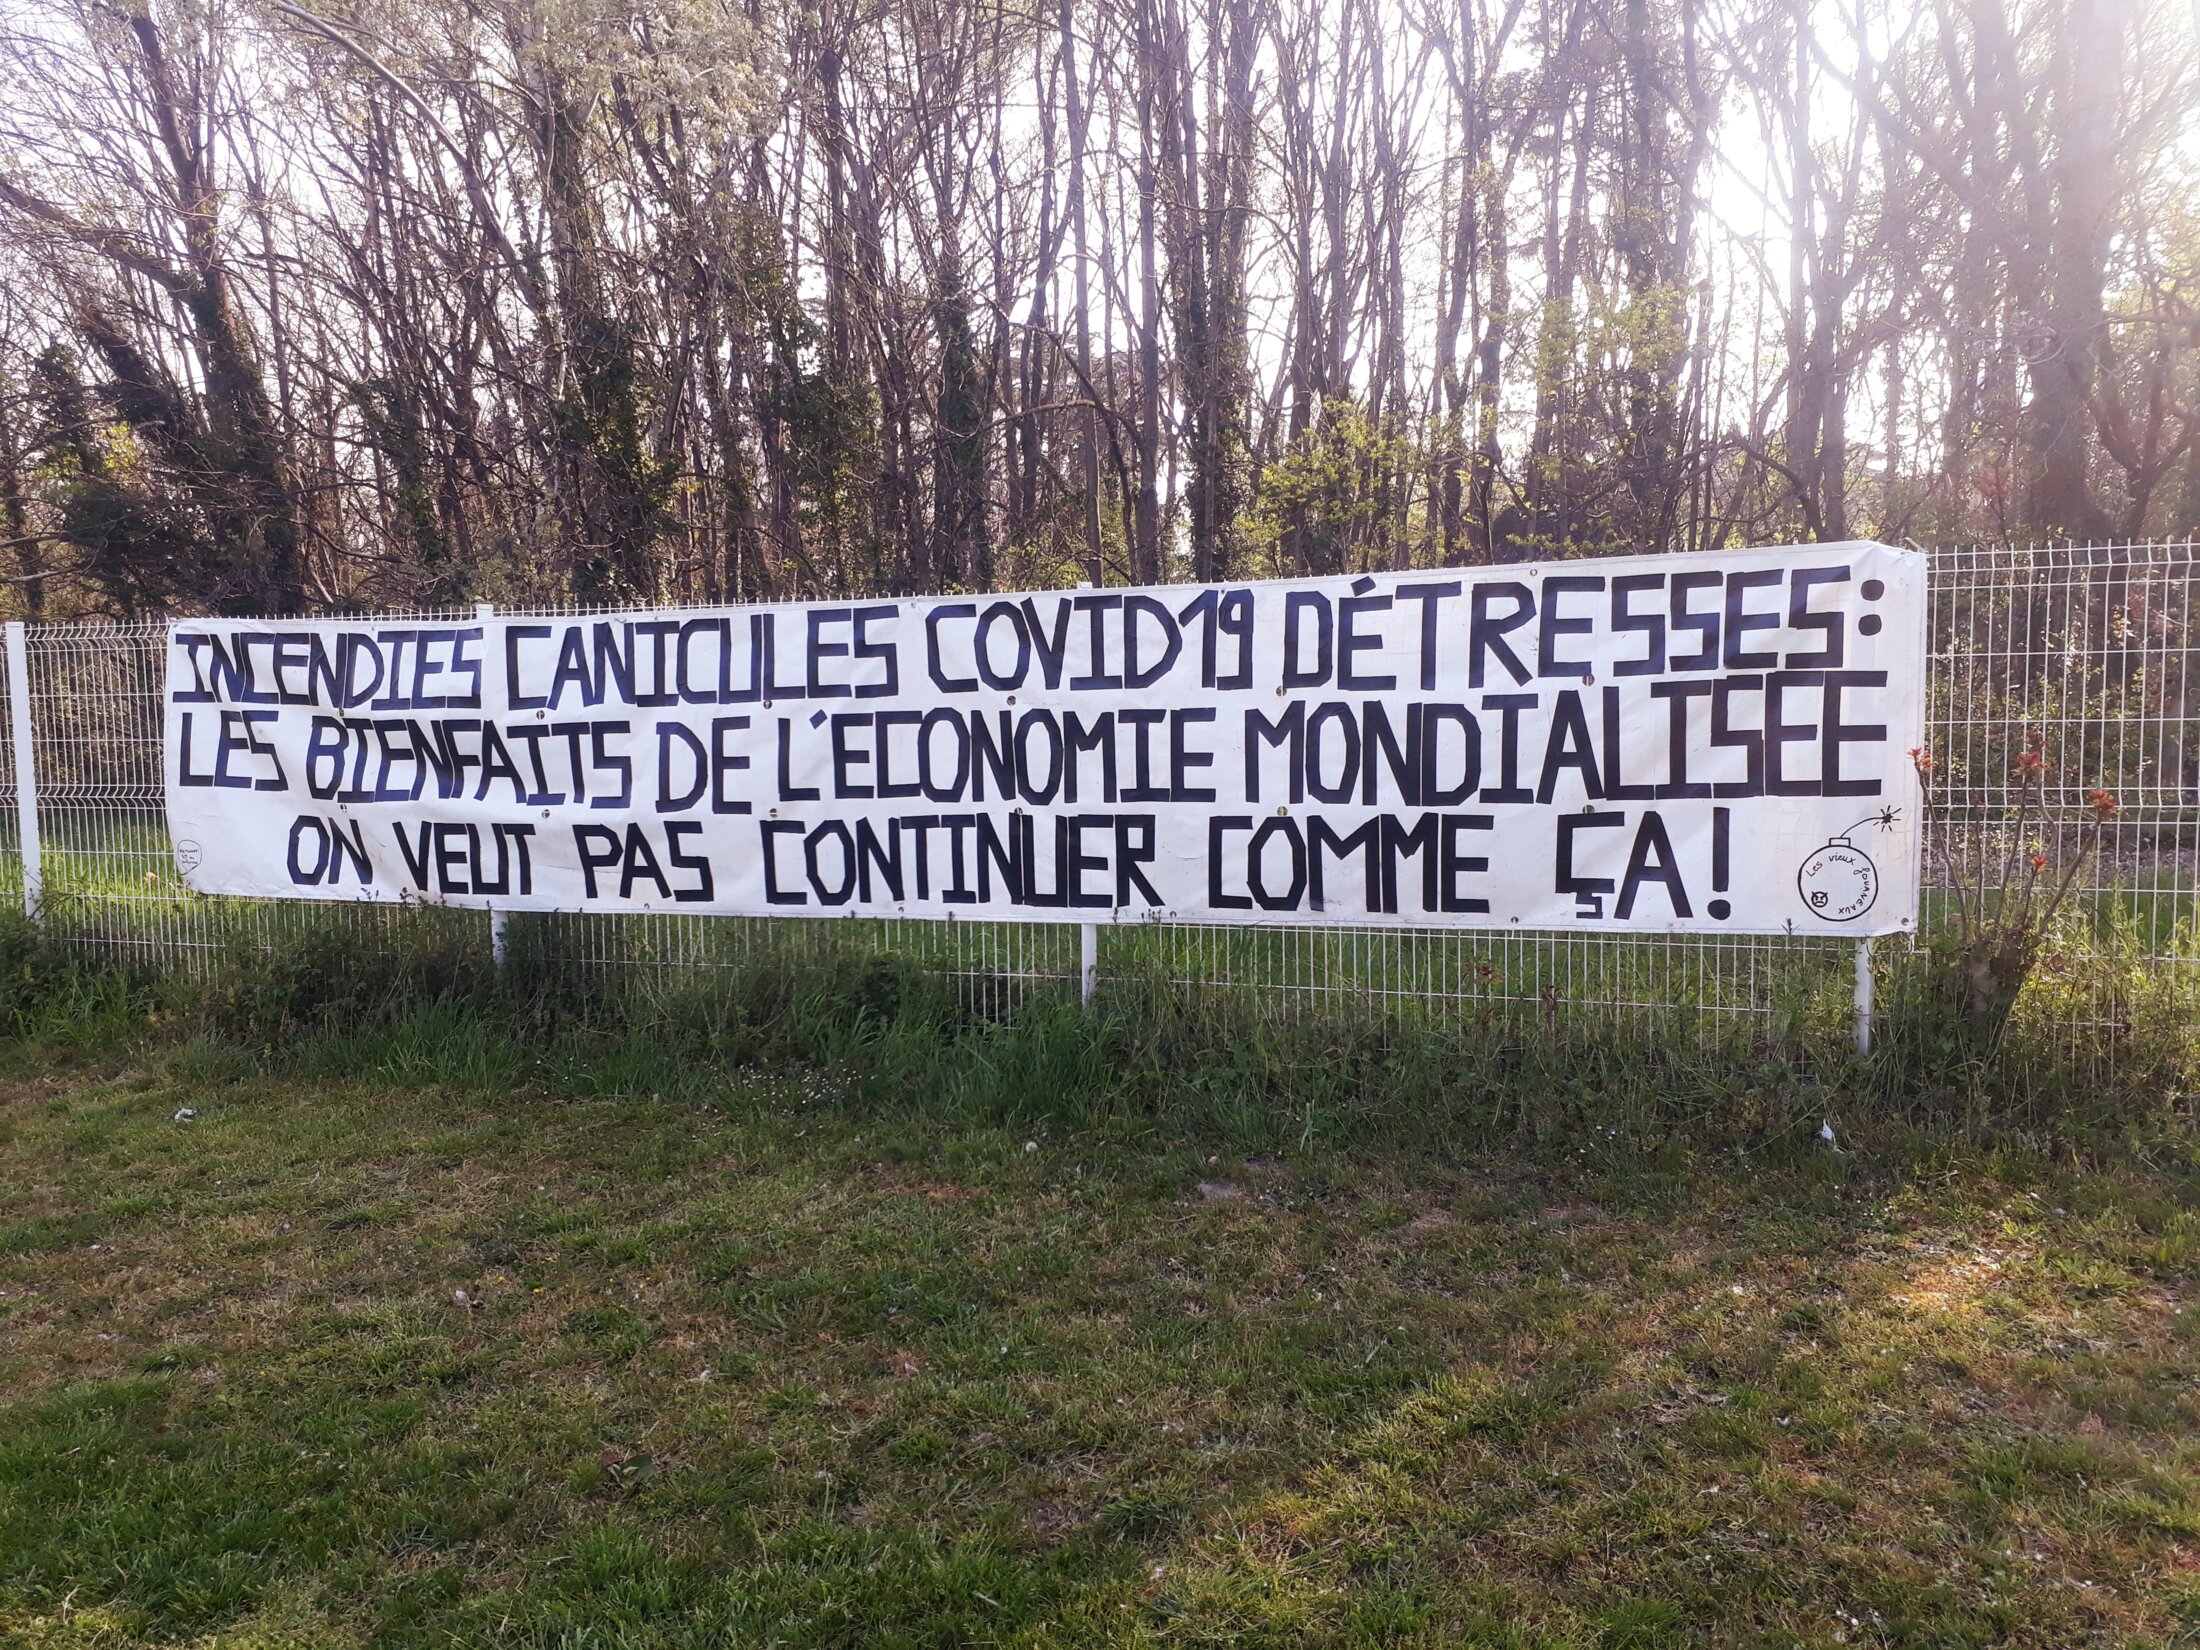 INCENDIES CANICULES COVID19 DÉTRESSES:
LES BIENFAITS DE L'ECONOMIE MONDIALISEE
ON VEUT PAS CONTINUER COMME ÇA!
Les vieux
fourneaux